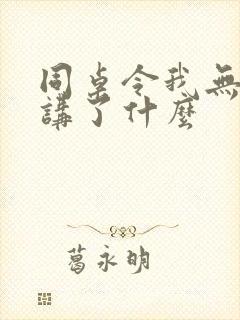 周桌令我無
講了什麼
葛永明